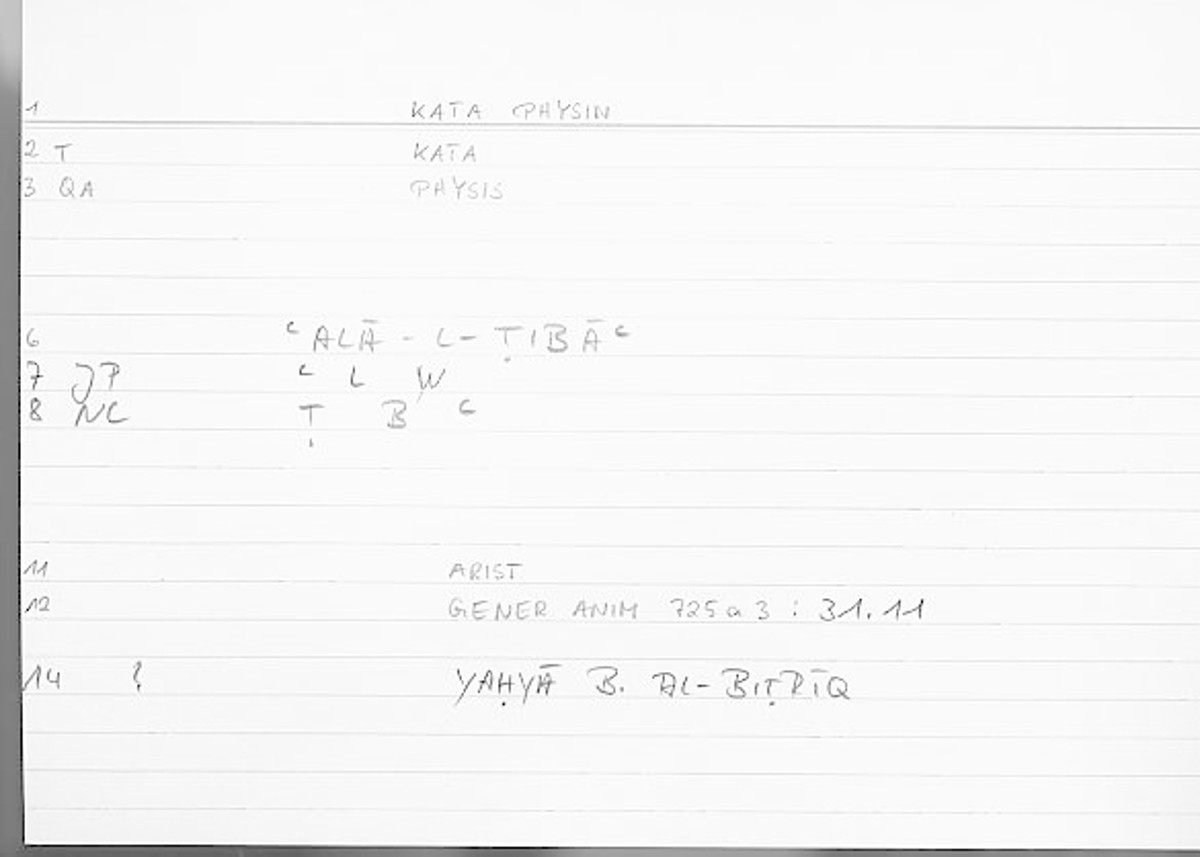 1 KATA PHYSIN
2 T KATA
3 QA PHYSIS
6 ʿALĀ - L - ṬIBĀʿ
7 JP ʿ L W
8 NC Ṭ B ʿ
11 ARIST
12 GENER ANIM 725a3 : 31.11
14 ? YAḤYĀ B. AL-BIṬRĪQ